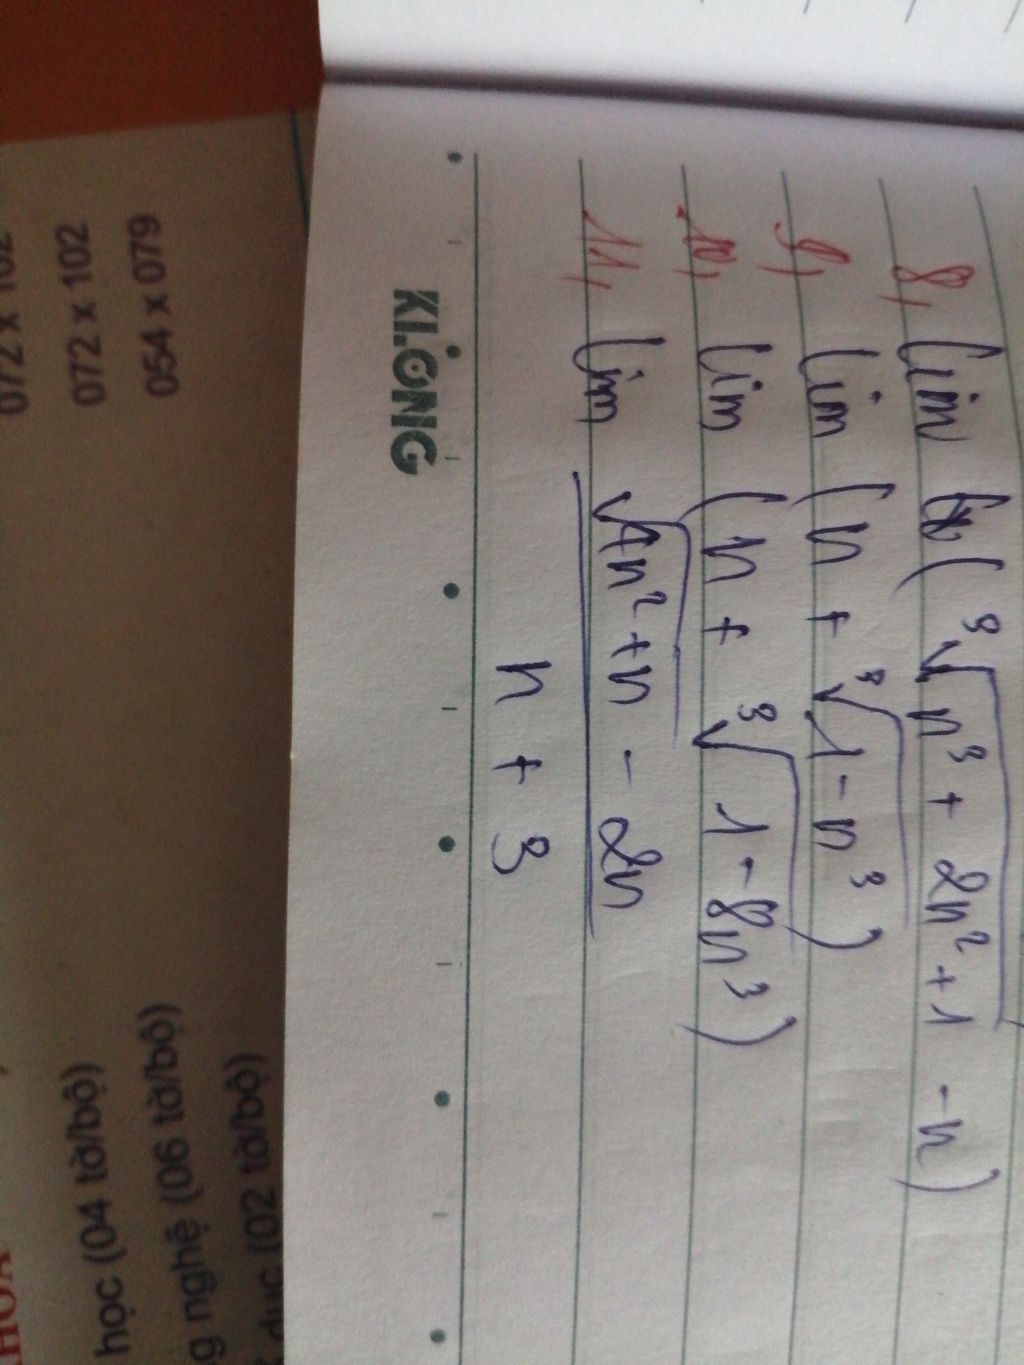 8, lim (∛(n³ + 2n² + 1) - n)
9, lim (n + ∛(1 - n³))
10, lim (n + ∛(1 - 8n³))
11, lim (√(4n² + n) - 2n) / (n + 3)
KLONG
072 x 102
072 x 102
054 x 079
học (04 tờ/bộ)
nghệ (06 tờ/bộ)
dục (02 tờ/bộ)